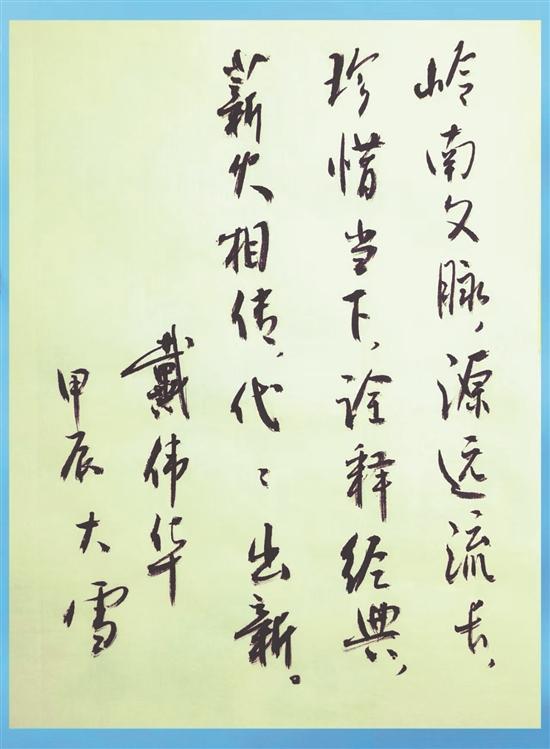 岭南文脉，源远流长，
珍惜当下，诠释经典，
薪火相传，代〻出新。
戴伟华
甲辰大雪